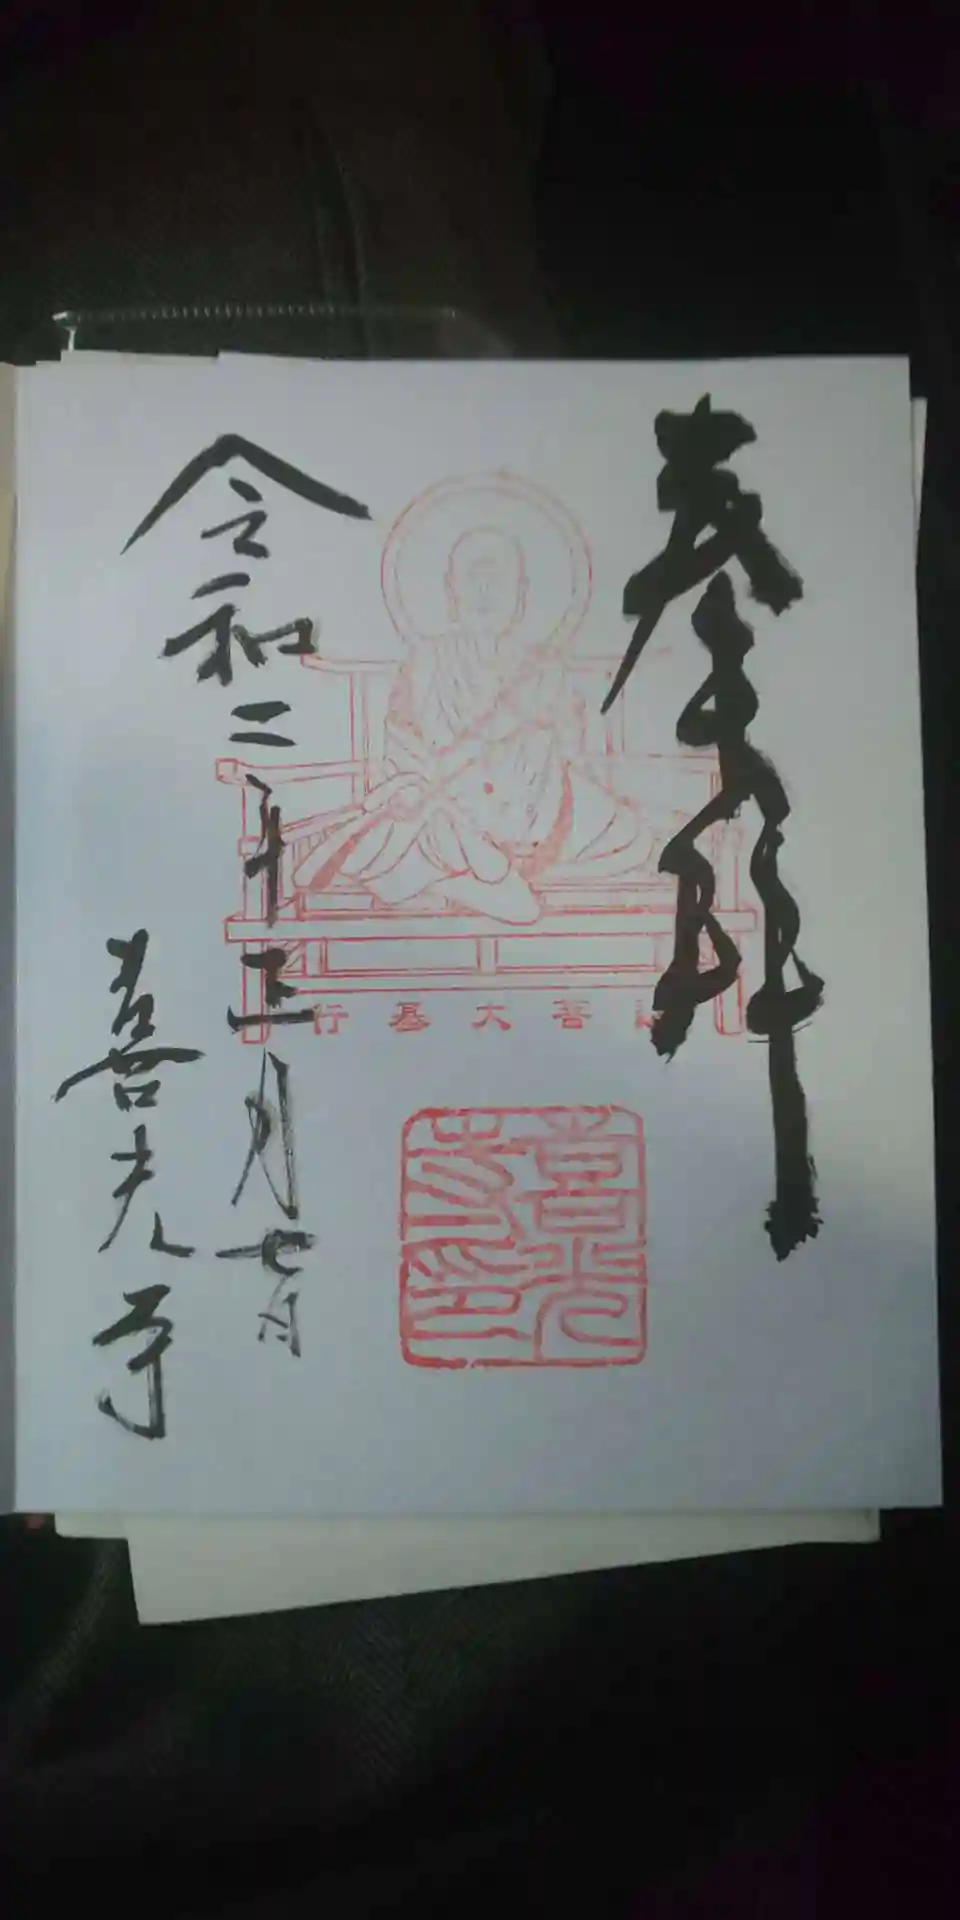 奉拝
行基大菩薩
喜光寺印
令和二年三月七日
喜光寺